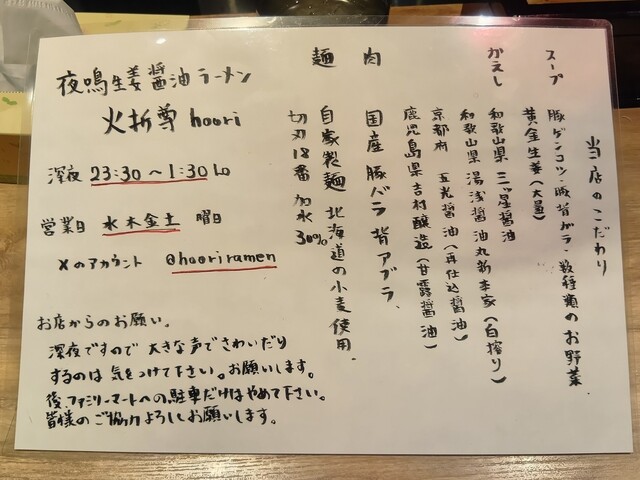 当店のこだわり
スープ 豚ゲンコツ・豚背ガラ・数種類のお野菜
黄金生姜(大量)
かえし 和歌山県 三ツ星醤油
和歌山県 湯浅醤油丸新本家(白搾り)
京都府 五光醤油(再仕込醤油)
鹿児島県吉村醸造(甘露醤油)
肉 国産豚バラ 背アブラ
麺 自家製麺 北海道の小麦使用.
切刃18番 加水30%
夜鳴生姜醤油ラーメン
火折尊 hoori
深夜 23:30~1:30Lo
営業日 水木金土 曜日
Xのアカウント @hooriramen
お店からのお願い。
深夜ですので大きな声でさわいだり
するのは気をつけて下さい。お願いします。
後、ファミリーマートへの駐車だけはやめて下さい。
皆様のご協力よろしくお願いします。